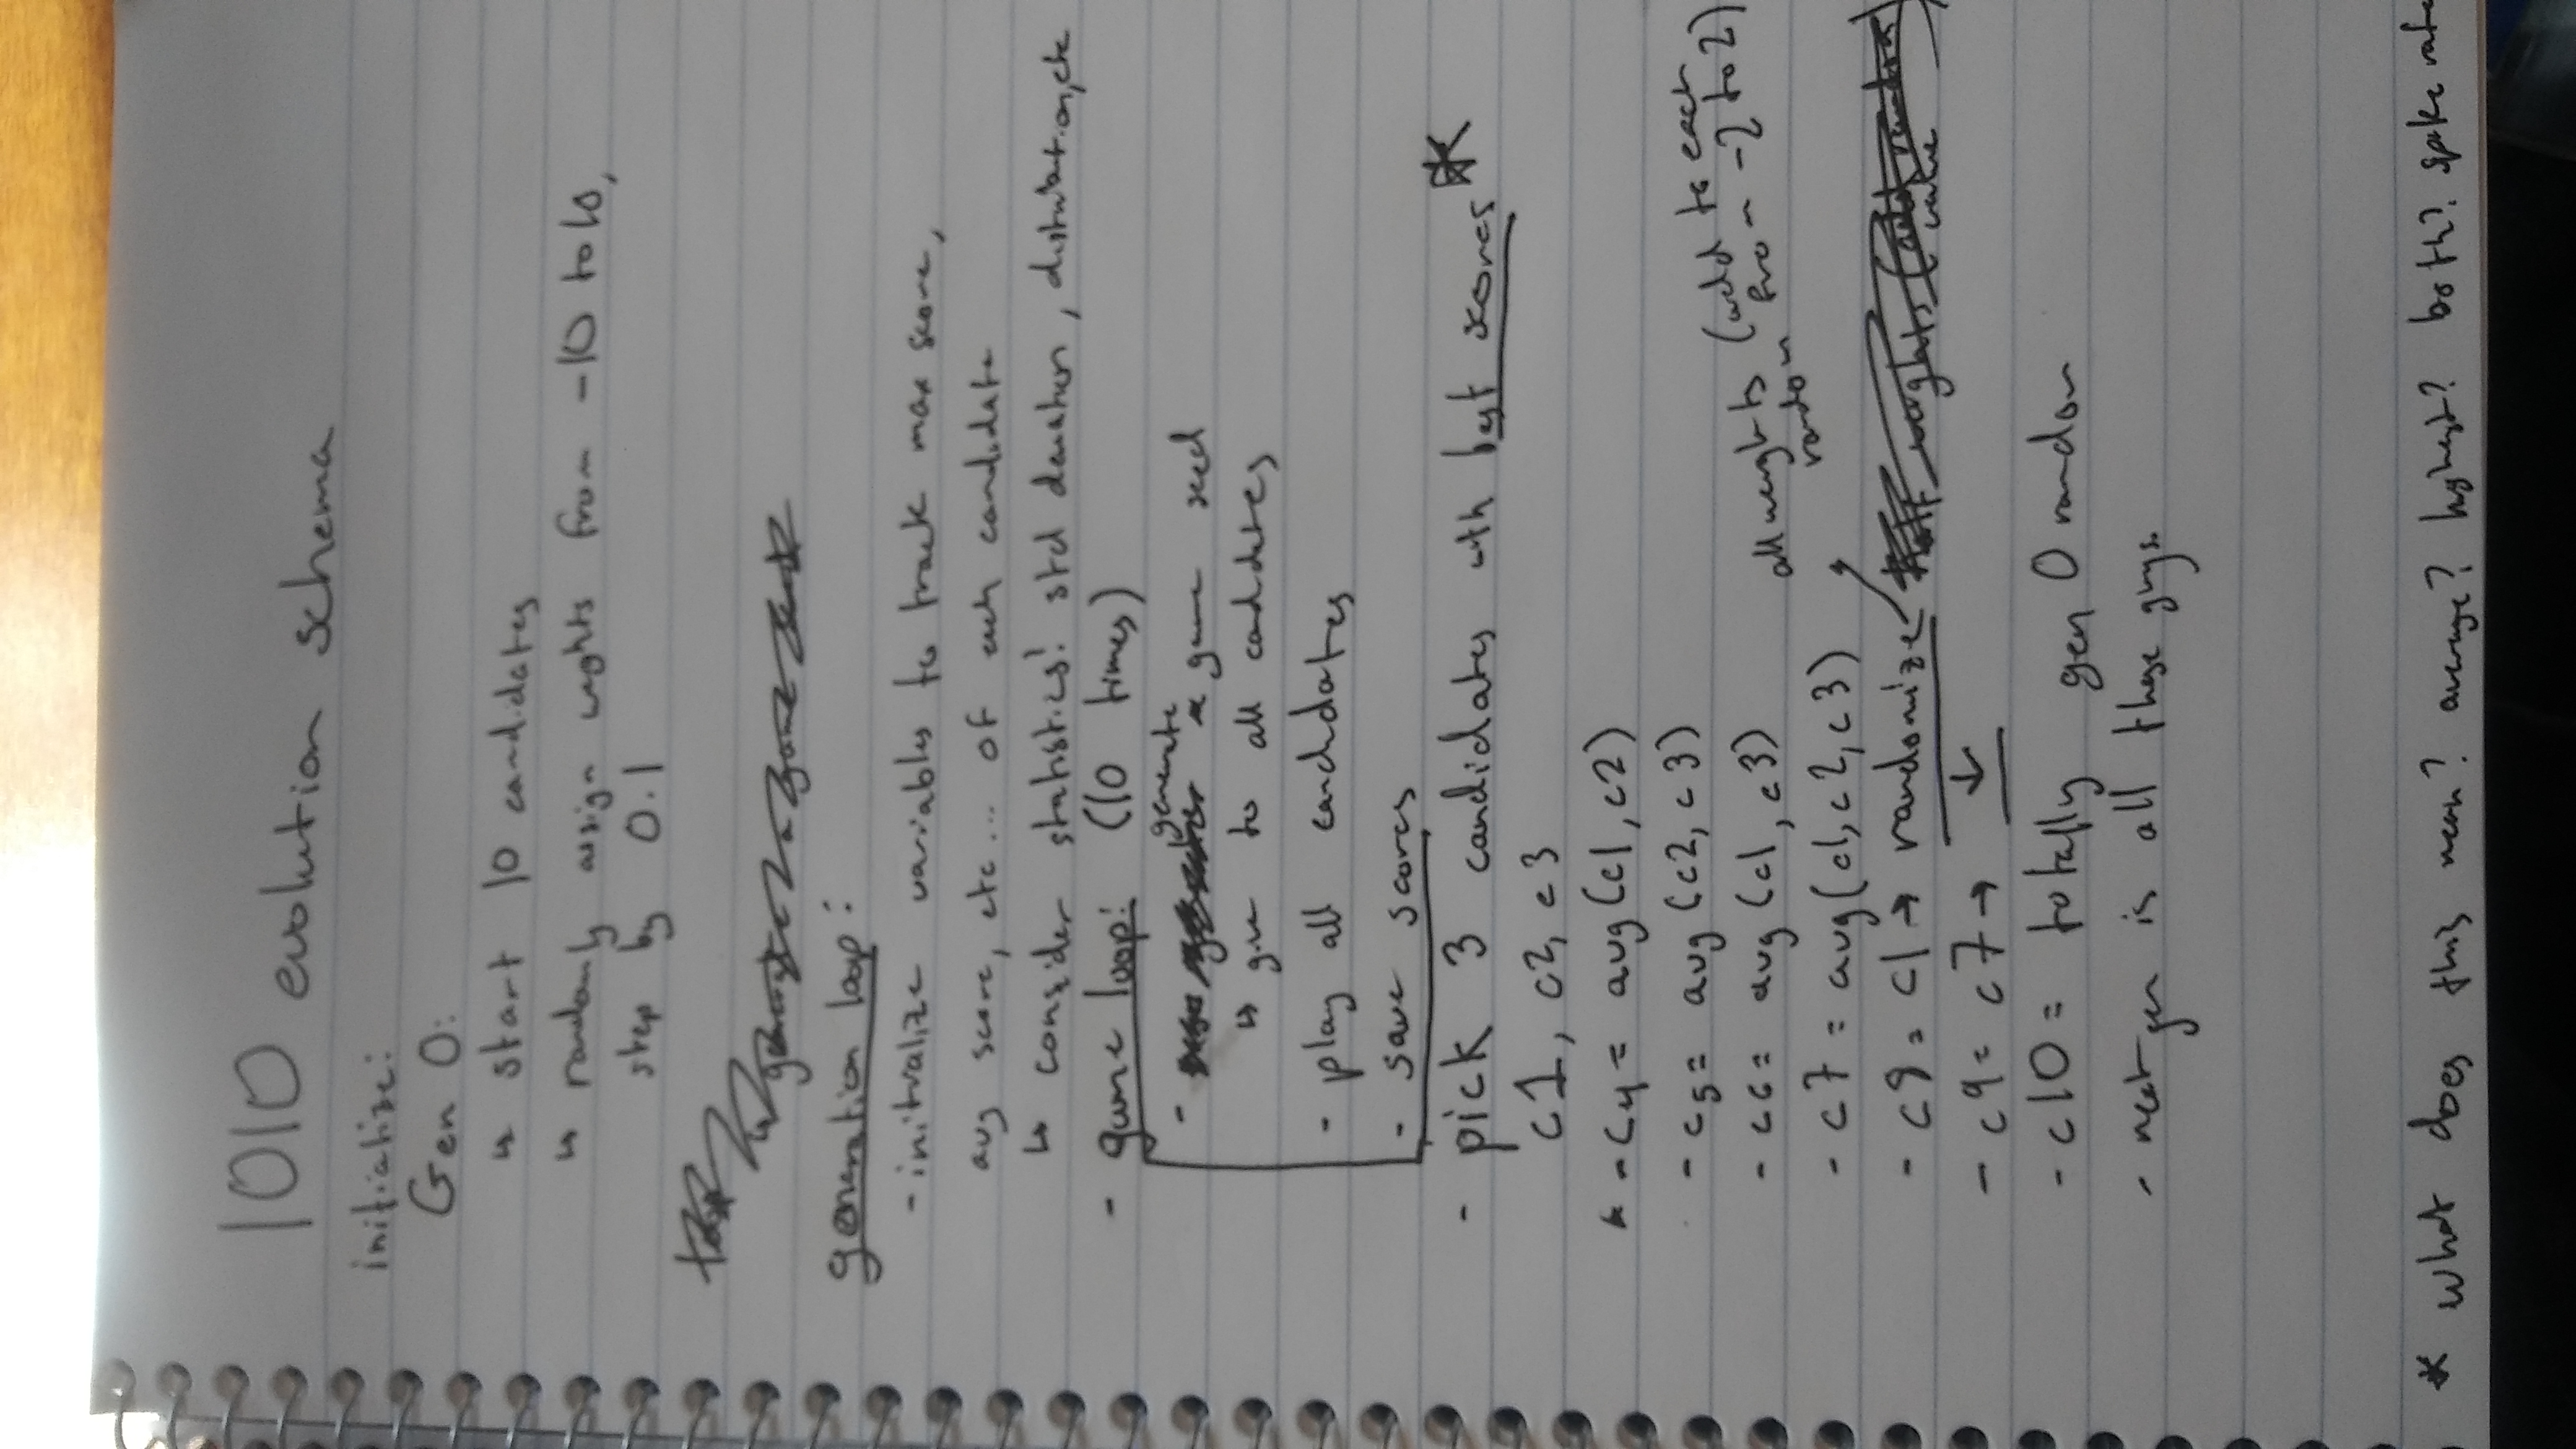 1010 evolution schema
initialize:
Gen 0:
↳ start 10 candidates
↳ randomly assign weights from -10 to 10,
step by 0.1
generation loop:
- initialize variables to track max score,
avg score, etc... of each candidate
↳ consider statistics! std deviation, distribution, etc
- game loop: (10 times)
- generate a game seed
↳ give to all candidates
- play all candidates
- save scores
- pick 3 candidates with best scores *
c1, c2, c3
* - c4 = avg(c1, c2)
- c5 = avg(c2, c3)
- c6 = avg(c1, c3)
- c7 = avg(c1, c2, c3)
- c8 = c1 → randomize
all weights (add to each
random from -2 to 2)
- c9 = c7 → ↓
- c10 = totally gen 0 random
- next gen is all these guys
* what does this mean? average? highest? both?